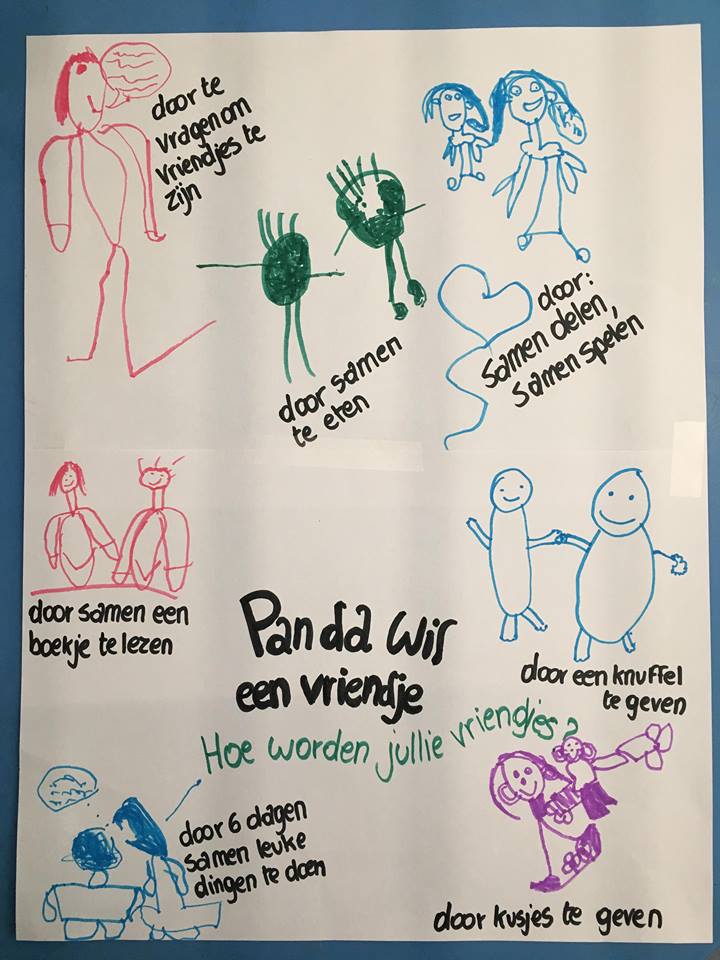 door te
vragen om
vriendjes te
zijn
door samen
te eten
door:
samen delen,
samen spelen
door samen een
boekje te lezen
door een knuffel
te geven
Panda wil
een vriendje
Hoe worden jullie vriendjes?
door 6 dagen
samen leuke
dingen te doen
door kusjes te geven